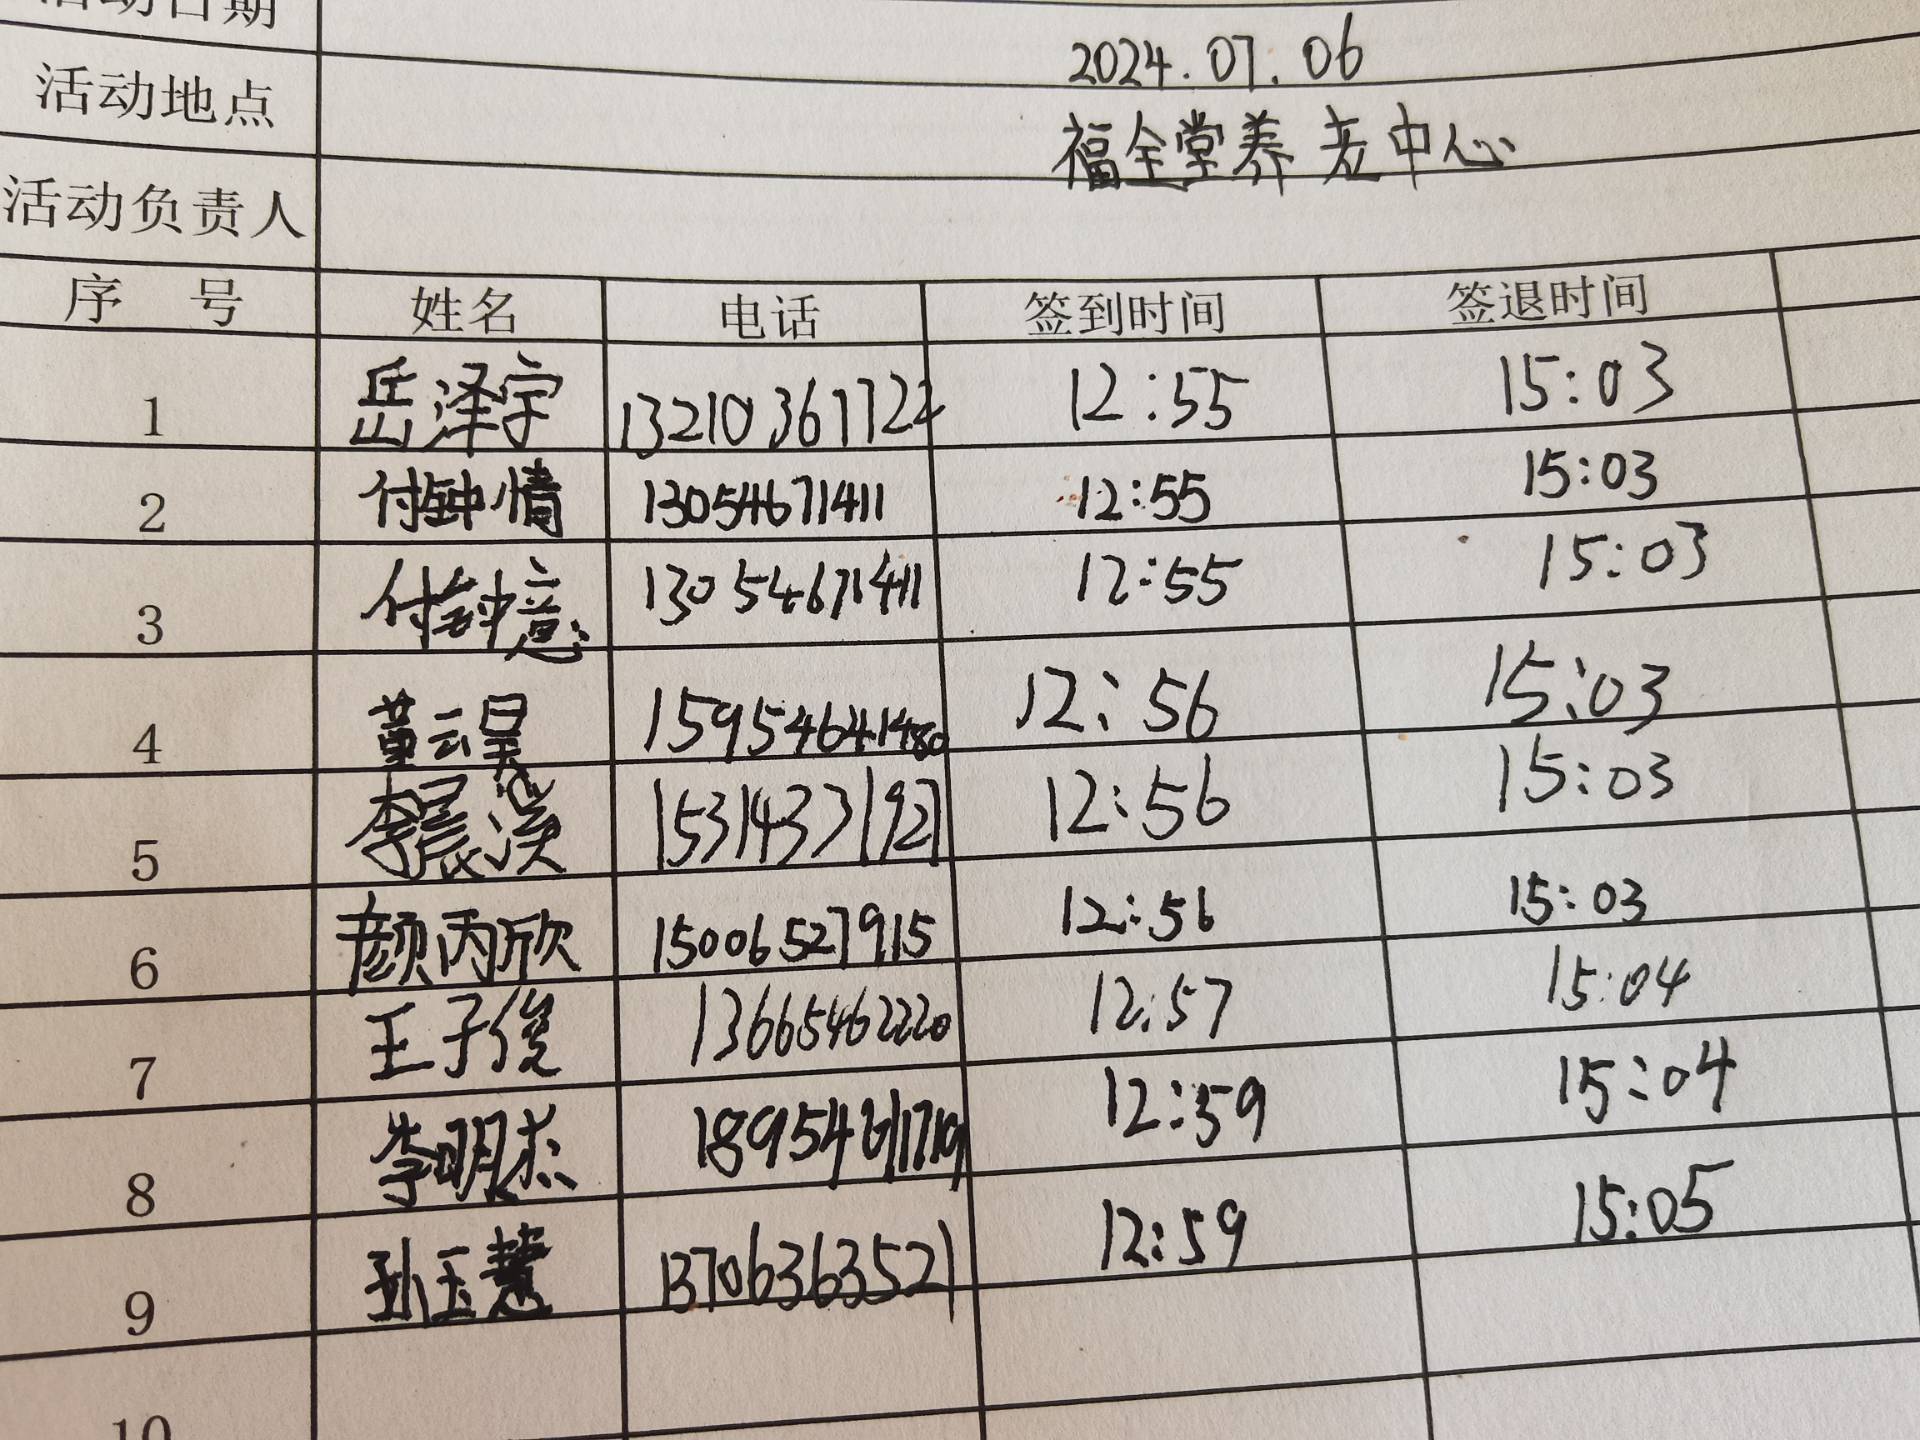 活动日期 2024.07.06
活动地点 福全堂养老中心
活动负责人
序 号 姓名 电话 签到时间 签退时间
1 岳泽宇 13210367722 12:55 15:03
2 付钟情 13054671411 12:55 15:03
3 付钟意 13054671411 12:55 15:03
4 董云昊 15954641480 12:56 15:03
5 李晨溪 15314371921 12:56 15:03
6 颜丙欣 15006527915 12:56 15:03
7 王子俊 13665462220 12:57 15:04
8 李明杰 18954611719 12:59 15:04
9 孙玉慧 13706363521 12:59 15:05
10